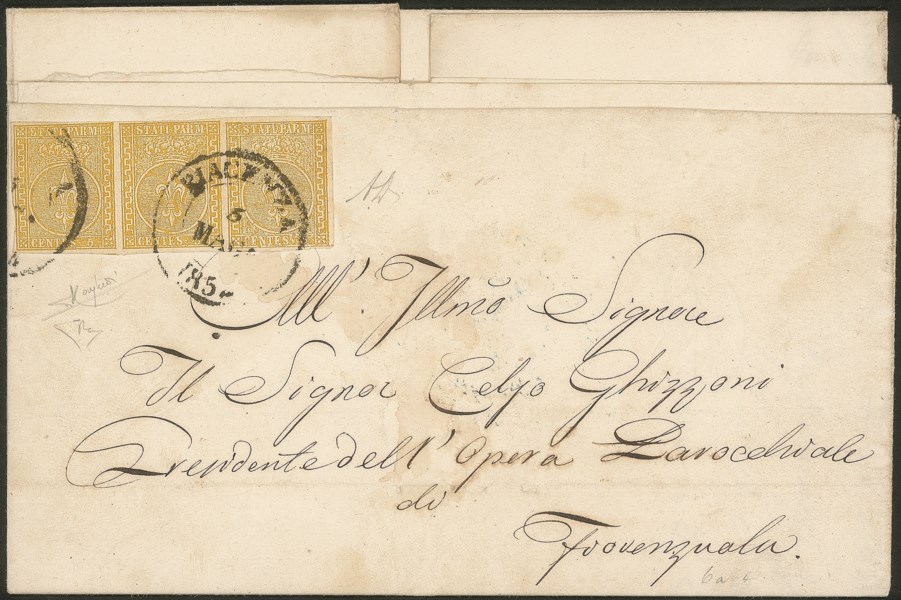 STATI PARM STATI PARM STATI PARM
CENTES 5 CENTES CENTES
PIACENZA
5
All' Illmõ Signore
Il Signor Celso Ghizzoni
Presidente dell' Opera Parocchiale
di
Fiorenzuola.